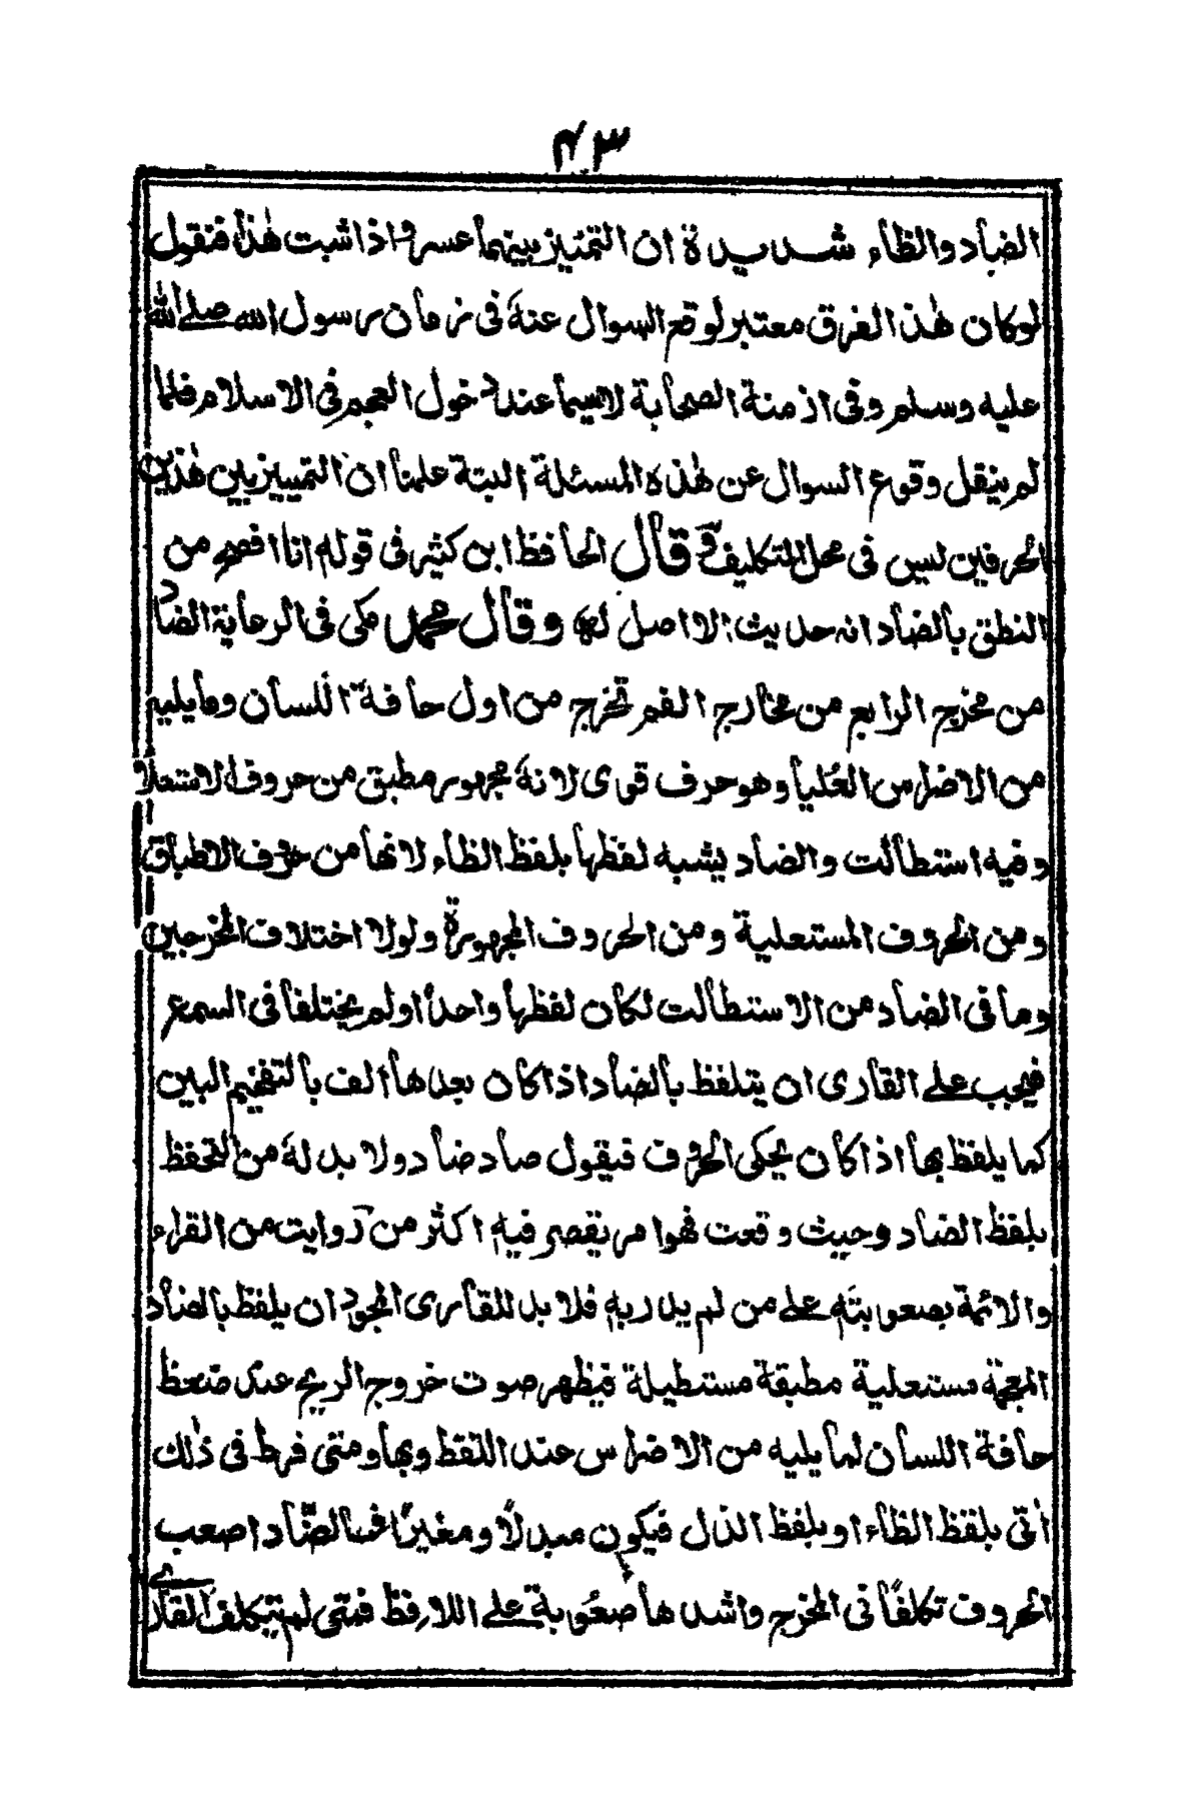 ۴۳
الضاد والظاء شديدة ان التمييز بينهما عسر واذا ثبت هٰذا فنقول
لو كان هٰذا الفرق معتبر لوقع السوال عنه فى زمان رسول الله صلے الله
عليه وسلم وفى ازمنة الصحابة لاسيما عند دخول العجم فى الاسلام فلما
لم ينقل وقوع السوال عن هٰذه المسئلة البتة علمنا ان التمييز بين هٰذين
الحرفين ليس فى محل التكليف وقال الحافظ ابن كثير فى قوله انا افصح من
النطق بالضاد انه حديث لا اصل له وقال محمد مكى فى الرعاية الضاد
من مخرج الرابع من مخارج الفم تخرج من اول حافة اللسان وما يليه
من الاضراس العُليا وهو حرف قوى لانه مجهور مطبق من حروف الاستعلا
وفيه استطالت والضاد يشبه لفظها بلفظ الظاء لانها من حروف الاطباق
ومن الحروف المستعلية ومن الحروف المجهورة ولولا اختلاف المخرجين
وما فى الضاد من الاستطالت لكان لفظها واحدًا ولم يختلفا فى السمع
فيجب علے القارى ان يتلفظ بالضاد اذا كان بعدها الف بالتفخيم البين
كما يلفظ بها اذا كان يحكى الحروف فيقول صاد ضاد ولا بد له من التحفظ
بلفظ الضاد وحيث وقعت فهو امر يقصر فيه اكثر من روايت من القراء
والائمة بصعوبته علے من لم يدر به فلا بد للقارى المجود ان يلفظ بالضاد
المعجمة مستعلية مطبقة مستطيلة فيظهر صوت خروج الريح عند ضغط
حافة اللسان لما يليه من الاضراس عند اللفظ وبها ومتى فرط فى ذٰلك
اتى بلفظ الظاء او بلفظ الذل فيكون مبدلًا ومغيرًا فالضّاد اصعب
الحروف تكلفًا فى المخرج واشدها صعُوبة علے اللافظ فمتى لم يتكلف القارى